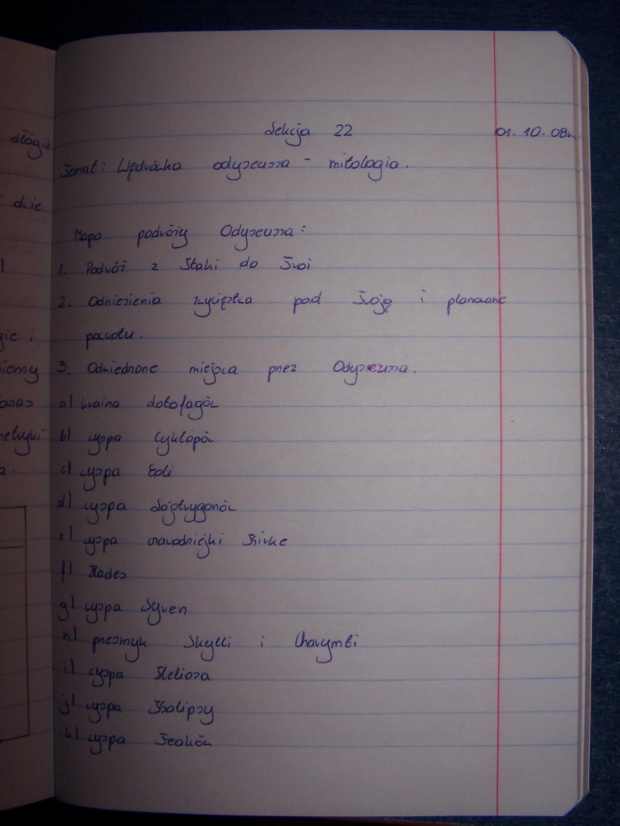 Lekcja 22 01. 10. 08r.
Temat: Wędrówka odyseusza - mitologia.
Mapa podróży Odyseusza:
1. Podróż z Itaki do Troi
2. Odniesienia zwycięstwa pod Troją i planowane
powrotu.
3. Odwiedzone miejsca przez Odyseusza.
a) kraina Lotofagów
b) wyspa Cyklopów
c) wyspa Eoli
d) wyspa Lajstrygonów
e) wyspa czarodziejki Kirke
f) Hades
g) wyspa Syren
h) przesmyk Skylli i Charymbi
i) wyspa Heliosa
j) wyspa Kalipsy
k) wyspa Feaków